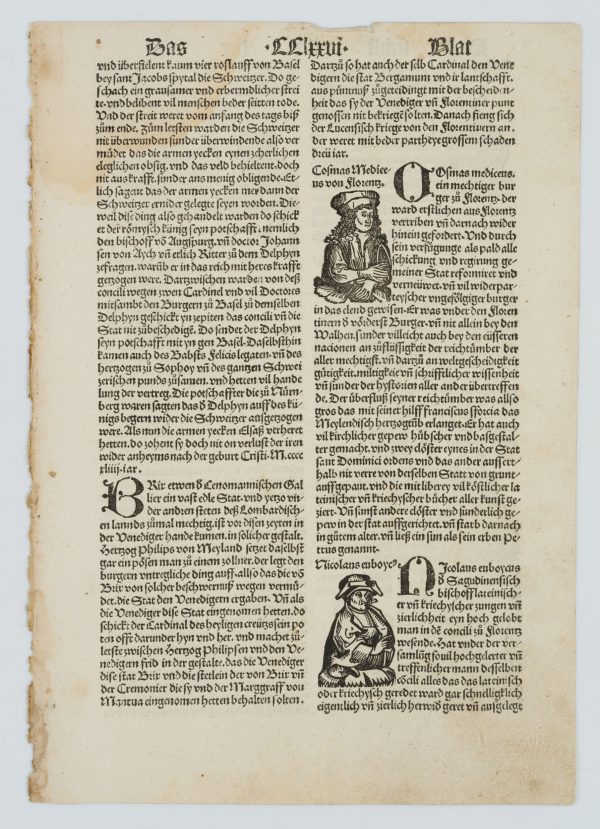 Das CCLxxvi Blat
vnd überfielent kaum vier roslauff von Basel
bey sant Jacobs spytal die Schweitzer. Do ge-
schach ein grausamer vnd erbermdlicher strei
te. vnd belibent vil menschen beder seitten tode.
Vnd der streit weret vom anfang des tags biß
zům ende. zům letsten warden die Schweitzer
nit überwunden sunder überwindende also ver
můdet das die armen yecken eynen iherlichen
cleglichen obsig. vnd das veld behieltent. doch
nit aus krafft. sunder ans menig obligende. Et-
lich sagent das der armen yecken mer dann der
Schweitzer ernider gelegte seyen worden. Die-
weil dise ding also gehandelt warden do schick
et der römysch künig seyn potschafft. nemlich
den bischoff vō Augspurg. vñ doctor Johann
sen von Aych vñ etlich Ritter zů dem Delphyn
zefragen. warůb er in das reich mit heres krafft
gezogen were. Dartzwischen warden von deß
concili wegen zwen Cardinel vnd vil Doctores
mitsambt den Burgern zu Basel zů demselben
Delphyn geschickt yn zepiten das concili vñ die
Stat nit zůbeschedigē. Do sendet der Delphyn
seyn potschafft mit yn gen Basel. Daselbsthin
kamen auch des Babsts Felicis legaten. vñ des
hertzogen zu Sophoy vñ des gantzen Schwei
zerischen punds zůsamen. vnd hetten vil hande
lung der vertreg. Die potschaffter die zů Nürn
berg waren sagten das d̄ Delphyn auff des kü-
nigs begern wider die Schweitzer außgezogen
were. Als nun die armen yecken Elsaß verheret
hetten. do zohent sy doch nit on verlust der iren
wider anheyms nach der geburt Cristi. M. cccc
xliiij. iar.
BRix etwen d̄ Cenomannischen Gal
lier ein vast edle Stat. vnd yetzo vn-
der andren steten deß Lombardisch-
en lannds zůmal mechtig. ist vor disen zeyten in
der Venediger hande kumen. in solicher gestalt.
Hertzog Philips von Meyland setzet daselbst
gar ein pösen man zu einem zollner. der legt den
burgern vntregliche ding auff. allso das die vō
Brix von solcher beschwernuß wegen vermü-
det. die Stat den Venedigern ergaben. Vñ als
die Venediger dise Stat eingenomen hetten. do
schickt der Cardinel des heyligen creütz sein po
ten offt darunder hyn vnd her. vnd machet zů-
letste zwischen Hertzog Philipsen vnd den Ve-
nedigern frid in der gestalte. das die Venediger
dise stat Brix vnd die stetlein der von Brix vñ
der Cremonier die sy vnd der Marggraff von
Mantua eingenomen hetten behalten solten.
Dartzů so hat auch der selb Cardinal den Vene
digern die stat Bergamum vnd ir lantschafft.
aus pündnuß zůgeteidingt mit der bescheiden-
heit das sy der Venediger vñ Florentiner punt
genossen nit bekriegē solten. Danach fieng sich
der Lucensisch kriege von den Florentinern an.
der weret mit beder partheyegrossen schaden
dreü iar.
Cosmas Medice-
us von Florentz.
COsmas medicens.
ein mechtiger bur
ger zů Florentz. der
ward erstlichen aus Florentz
vertriben vñ darnach wider
hinein gefordert. Vnd durch
sein verfügunge als pald alle
schickung vnd regirung ge-
meiner Stat reformiret vnd
verneüwet. vñ vil widerpar-
teyscher vngesöligiger burger
in das elend gewisen. Er was vnder den Floren
tinern d̄ vödderst Burger. vñ nit allein bey den
Walhen. sunder villeicht auch bey den eüsseren
nacionen an zůflüssigkeit der reichtümber der
aller mechtigst. vñ dartzů an weltgeschedigkeit
gütigkeit. miltigkeit vñ schrifftlicher wissenheit
vñ sunder der hystorien aller ander übertreffen
de. Der überfluß seyner reichtümber was allso
gros das mit seiner hilff franciscus sforcia das
Meylendisch hertzogtůb erlanget. Er hat auch
vil kirchlicher gepew hübscher vnd basgestal-
ter gemacht. vnd zwey clöster eynes in der Stat
sant Dominici ordens vnd das ander ausser-
halb nit verre von derselben Stat von grunt
auffgepaut. vnd die mit liberey vil köstlicher la
teinischer vñ kriechyscher bücher aller kunst ge-
ziert. Vñ sunst andere clöster vnd sünderlich ge-
pew in der stat auffgerichtet. vñ starb darnach
in gůtem alter. vñ ließ ein sun als sein erben Pe-
trus genannt.
Nicolaus euboyc9
NIcolaus euboycus
d̄ Sagudinensisch
bischoff lateinisch-
er vñ kriechyscher zungen vñ
zierlichheit eyn hoch gelobt
man in dē concili zů Florentz
wesende. Hat vnder der ver-
samlūg souil hochgelerter vñ
treffenlicher mann desselben
cōcili alles das das lateinisch
oder kriechysch geredet ward gar schnelligklich
eigentlich vñ zierlich herwid̄ geret vñ außgelegt